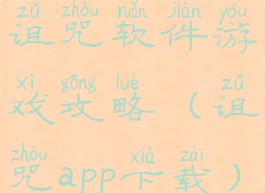 zǔ zhòu ruǎn jiàn yóu
诅咒软件游
xì gōng lüè zǔ
戏攻略（诅
zhòu xià zài
咒app下载）